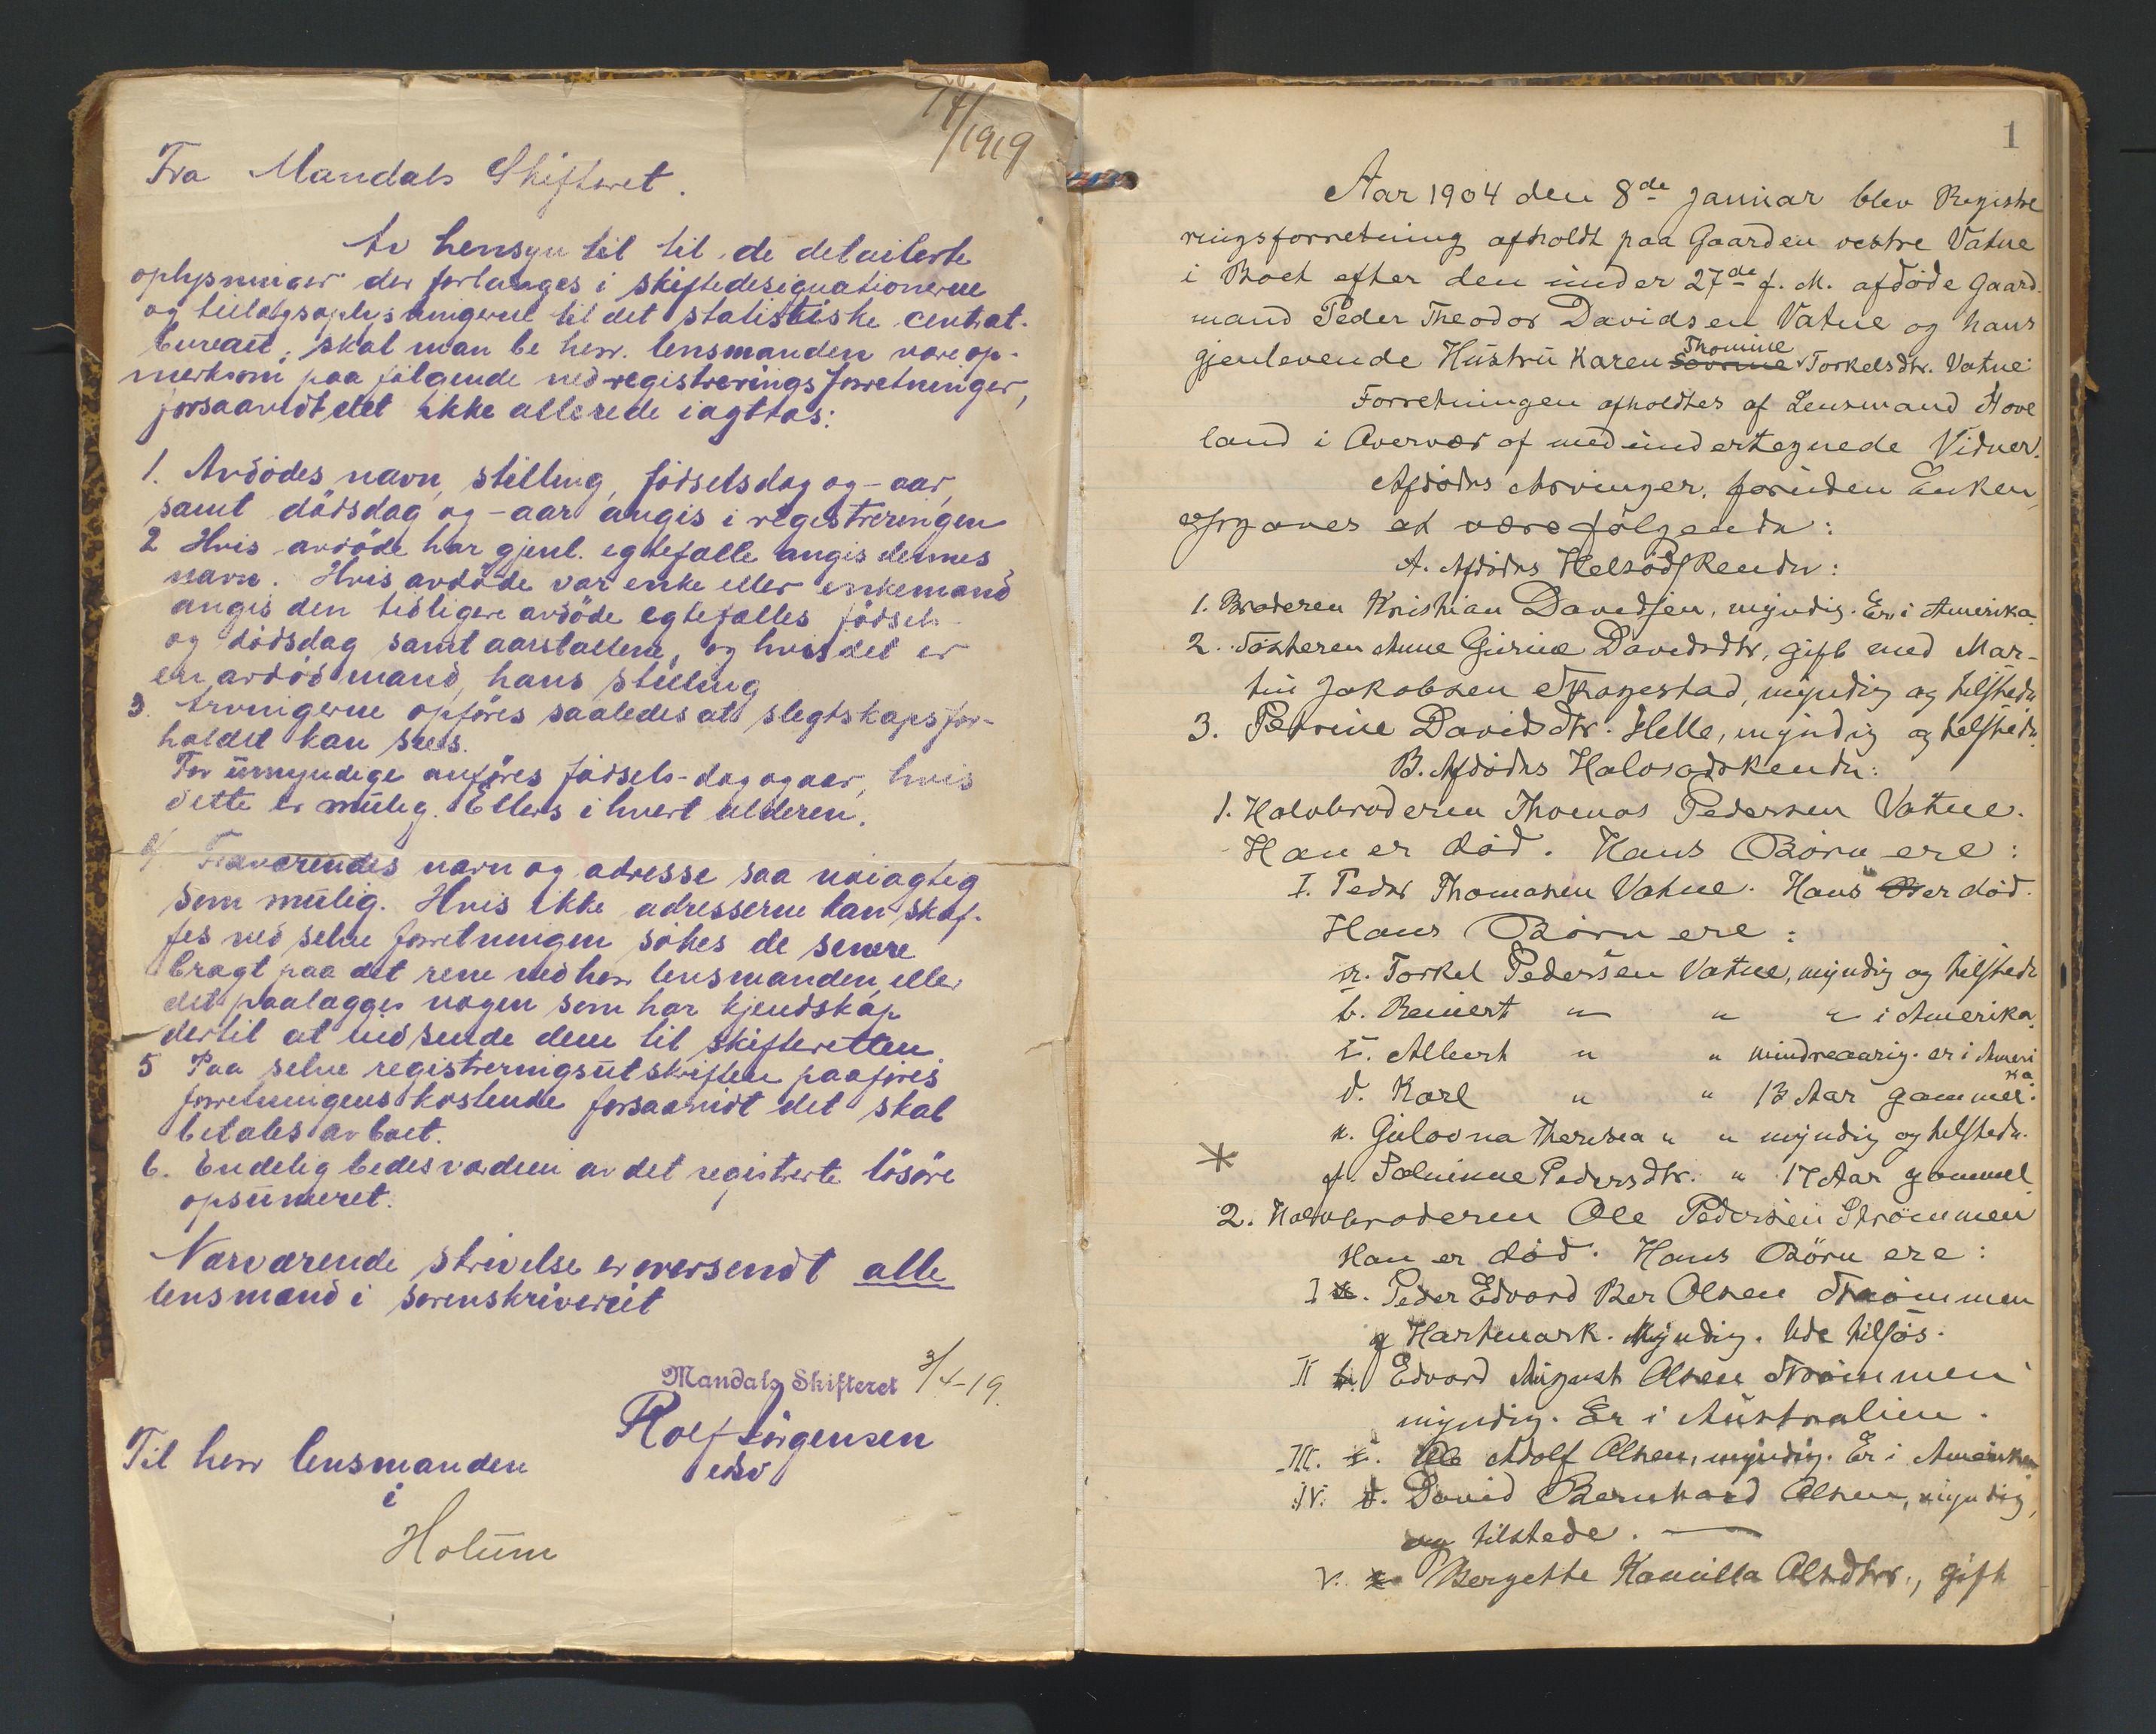 7/4/1919
Fra Mandals Skifteret.
Av hensyn til til de detailerte
oplysninger der forlanges i skiftedesignationerne
og tillægsoplysningerne til det statistiske central-
bureau, skal man be herr. lensmanden være op-
merksom paa følgende ved registreringsforretninger,
forsaavidt det ikke allerede iagttas:
1. Avdødes navn, stilling, födselsdag og -aar,
samt dödsdag og -aar angis i registreringen
2 Hvis avdöde har gjenl. egtefælle angis dennes
navn. Hvis avdöde var enke eller enkemand
angis den tidligere avdöde egtefælles födsels-
og dödsdag samt aarstallene, og hvis det er
en avdöd mand, hans stilling
3. Arvingerne opföres saaledes at slegtskapsfor-
holdet kan sees.
For umyndige anföres födsels-dag og aar, hvis
dette er mulig. Ellers i hvert alderen.
4. Fraværendes navn og adresse saa nöiagtig
som mulig. Hvis ikke adresserne kan skaf-
fes ved selve forretningen sökes de senere
bragt paa det rene ved herr lensmanden, eller
det paalægges nogen som har kjendskap
dertil at indsende dem til skifteretten.
5 Paa selve registreringsutskriften paaföres
forretningens kostende forsaavidt det skal
betales av boet.
6. Endelig bedes værdien av det registrerte lösöre
opsumeret.
Nærværende skrivelse er oversendt alle
lensmænd i sorenskriveriet
Mandals Skifteret 3/4-19.
Rolf Jörgensen
edsv
Til herr lensmanden
i
Holum
1
Aar 1904 den 8de Januar blev Registre
ringsforretning afholdt paa Gaarden vestre Vatne
i Boet efter den under 27de f. M. afdöde Gaard
mand Peder Theodor Davidsen Vatne og hans
Thomine
gjenlevende Hustru Karen Torkelsdtr. Vatne
Forretningen afholdtes af Lensmand Hove
land i Overvær af medundertegnede Vidner.
Afdödes Arvinger, foruden Enken,
opgaves at være fölgende:
A. Afdödes Helsödskende:
1. Broderen Kristian Davidsen, myndig. Er i Amerika
2. Sösteren Anne Gurine Davidsdtr, gift med Mar-
tin Jakobsen Skogestad, myndig og tilstede
3. Petrine Davidsdtr. Helle, myndig og tilstede
B. Afdödes Halvsödskende:
1. Halvbroderen Thomas Pedersen Vatne.
Han er död. Hans Börn ere:
I. Peder Thomasen Vatne. Hans er död.
Hans Börn ere:
a. Torkel Pedersen Vatne, myndig og tilstede
b. Reinert " " " i Amerika.
c. Albert " " mindreaarig. er i Ameri
ka
d. Karl " " 13 Aar gammel.
e. Gulovna Theresea " " myndig og tilstede.
* f. Salminne Pedersdtr. " 17 Aar gammel
2. Halvbroderen Ole Pedersen Strömmen
Han er död. Hans Börn ere:
I a. Peder Edvard Ber Olsen Strömmen
Hartmark. Myndig. Ude tilsös.
II b. Edvard August Olsen Strömmen
myndig. Er i Australien.
III. c. Adolf Olsen, myndig. Er i Amerika
IV. d. David Bernhard Olsen, myndig,
og tilstede.
V. e. Bergette Kamilla Olsdtr., gift